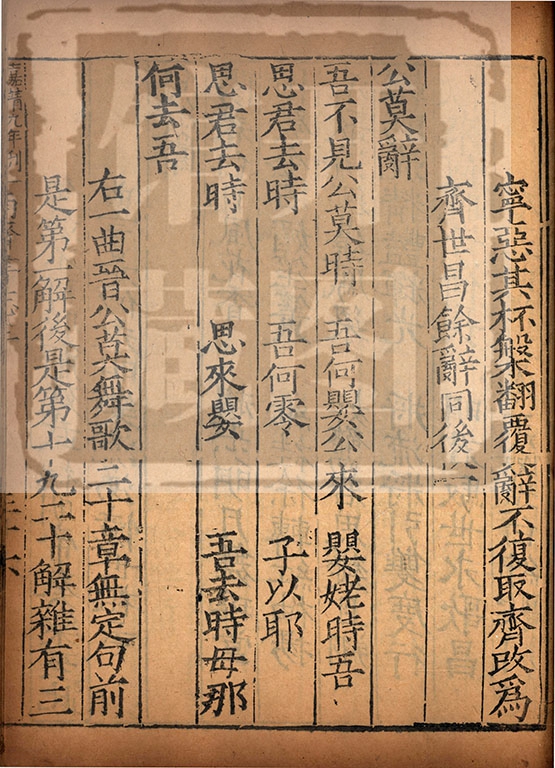 寧惡其杯槃翻覆辭不復取齊改爲
齊世昌餘辭同後
公莫辭
吾不見公莫時　吾何嬰公來　嬰姥時吾
思君去時　吾何零　子以耶
思君去時　思來嬰　吾去時毋那
何去吾
右一曲晉公莫舞歌二十章無定句前
是第一解後是第十九二十解雜有三
嘉靖九年刊
二十六